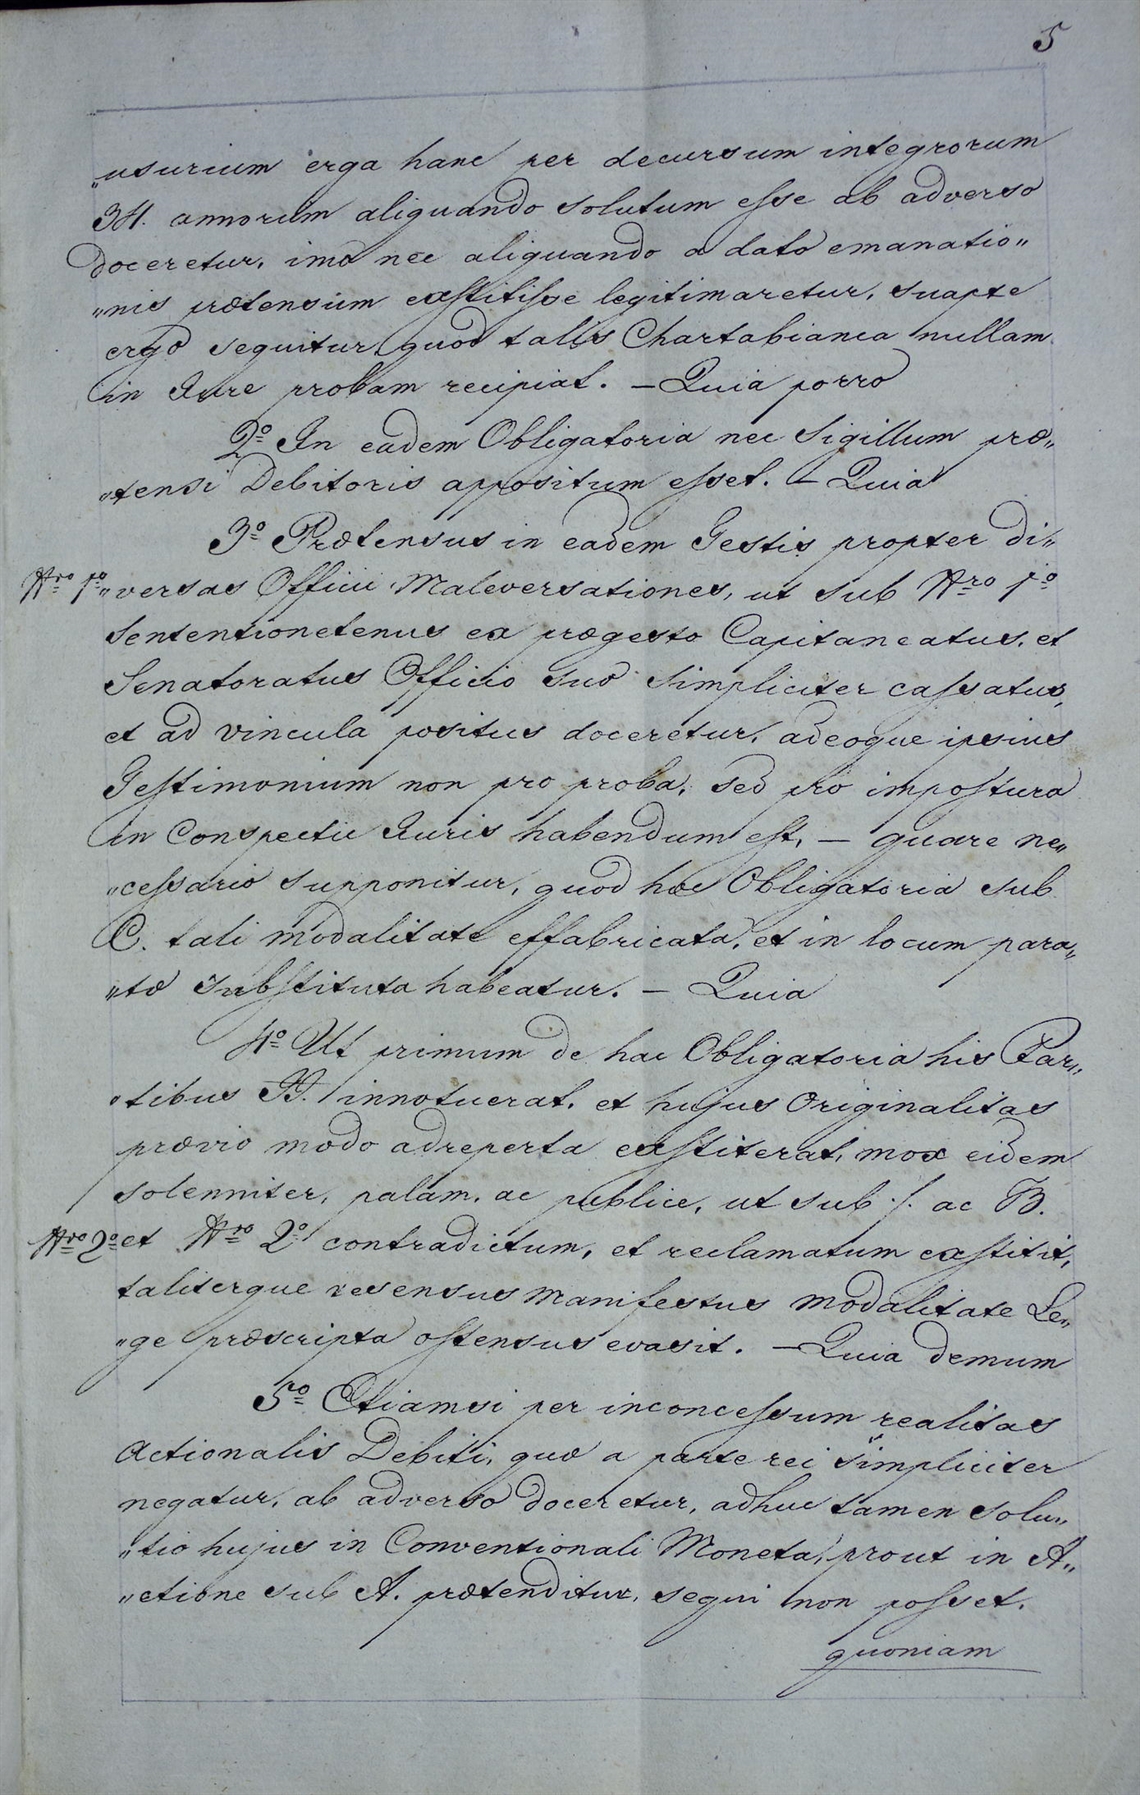 5
„usurium erga hanc per decursum integrorum
34. annorum aliquando solutum esse ab adverso
doceretur, imo nec aliquando a dato emanatio„
„nis prætensium exstitisse legitimaretur, suapte
ergo sequitur quod talis Chartabianca nullam
in Jure probam recipiat. – Quia porro
2º In eadem Obligatoria nec Sigillum præ„
„tensi Debitoris appositum esset. – Quia
3º Prætensus in eadem Testis propter di„
Nro 1º „versas Officii Maleversationes, ut sub Nro 1º
Sententionetenus ex prægesto Capitaneatus, et
Senatoratus Officio suo simpliciter cassatus,
et ad vincula positus doceretur, adeoque ipsius
Testimonium non pro proba, sed pro impostura
in Conspectu Juris habendum est, – quare ne„
„cessario supponitur, quod hæc Obligatoria sub
C. tali modalitate effabricata, et in locum para„
„tæ substituta habeatur. – Quia
4º Ut primum de hac Obligatoria his Par„
„tibus II. innotuerat, et hujus Originalitas
prævio modo adreperta exstiterat, mox eidem
solenniter, palam, ac publice, ut sub ./. ac B.
Nro 2º et Nro 2º contradictum, et reclamatum exstitit,
taliterque resensus manifestus modalitate Le„
„ge præscripta ostensus evasit. – Quia demum
5º Etiamsi per inconcessum realitas
Actionalis Debiti, quæ a parte rei simpliciter
negatur, ab adverso doceretur, adhuc tamen solu„
„tio hujus in Conventionali Moneta, prout in A„
„ctione sub A. prætenditur, sequi non posset,
quoniam